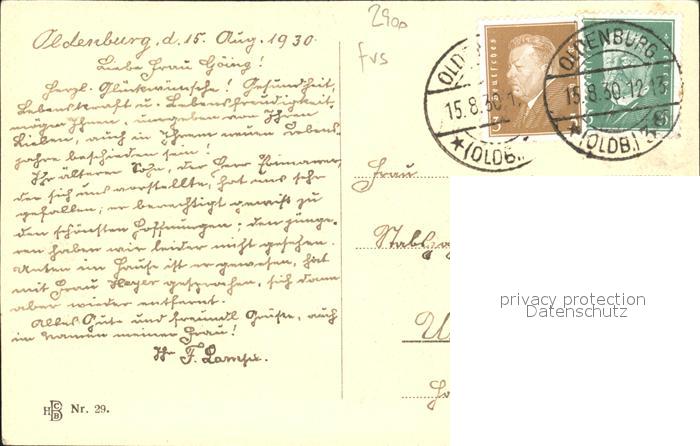 2900
fvs
Oldenburg, d. 15. Aug. 1930.
Liebe Frau Göing!
Herzl. Glückwünsche! Gesundheit,
Lebenskraft u. Lebensfreudigkeit
möge Ihnen, umgeben von Ihren
Lieben, auch in Ihrem neuen Lebens-
jahre beschieden sein!
Ihr älterer Sohn, der Herr
der sich uns vorstellte, hat uns sehr
gefallen; er berechtigt gewiß zu
den schönsten Hoffnungen; den jünge-
ren haben wir leider nicht gesehen.
Unten im Hause ist er gewesen, hat
mit Frau Meyer gesprochen, sich dann
aber wieder entfernt.
Alles Gute und freundl Grüße, auch
im Namen meiner Frau!
Ihr F. Lampe.
HBCB Nr. 29.
OLDENBURG
15.8.30.12
★(OLDB.)
OLDENBURG
15.8.30.12-13
★(OLDB.)3
Frau
privacy protection
Datenschutz